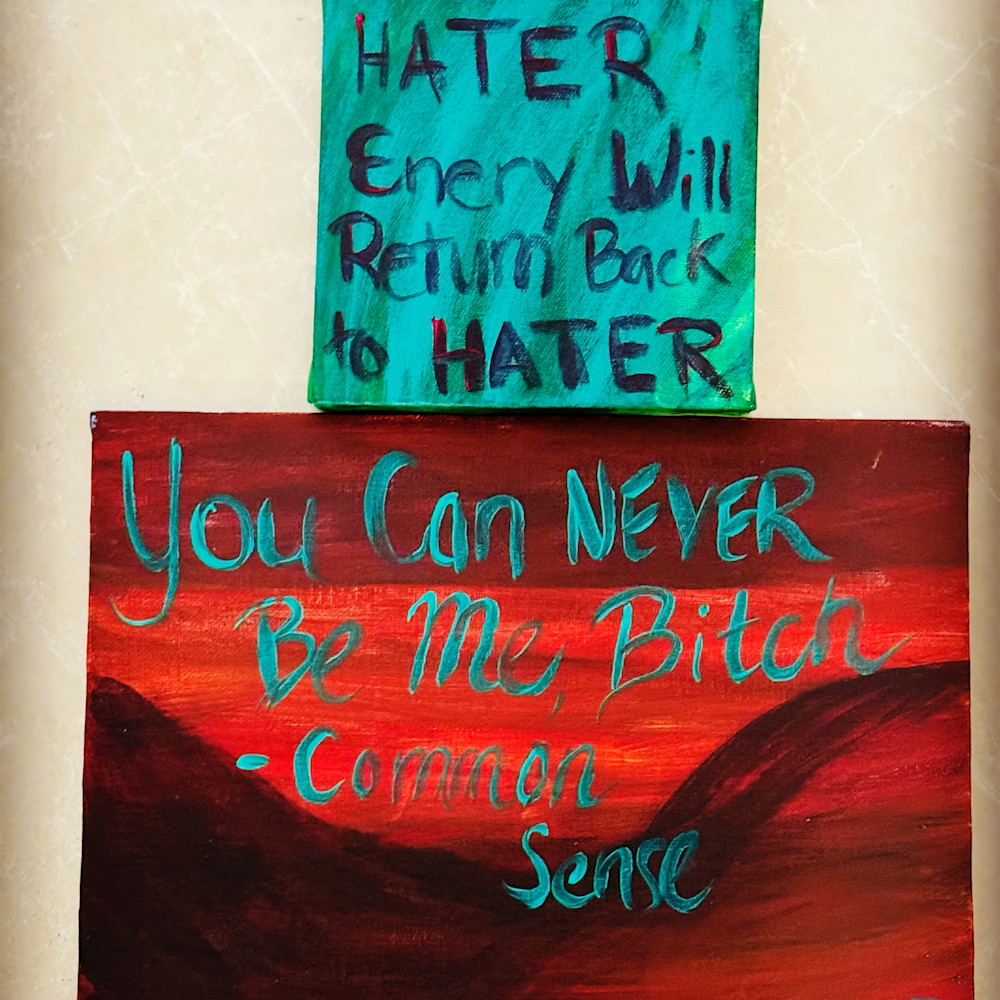 HATER
Enery Will
Return Back
to HATER
You Can NEVER
Be Me, Bitch
- Common
Sense